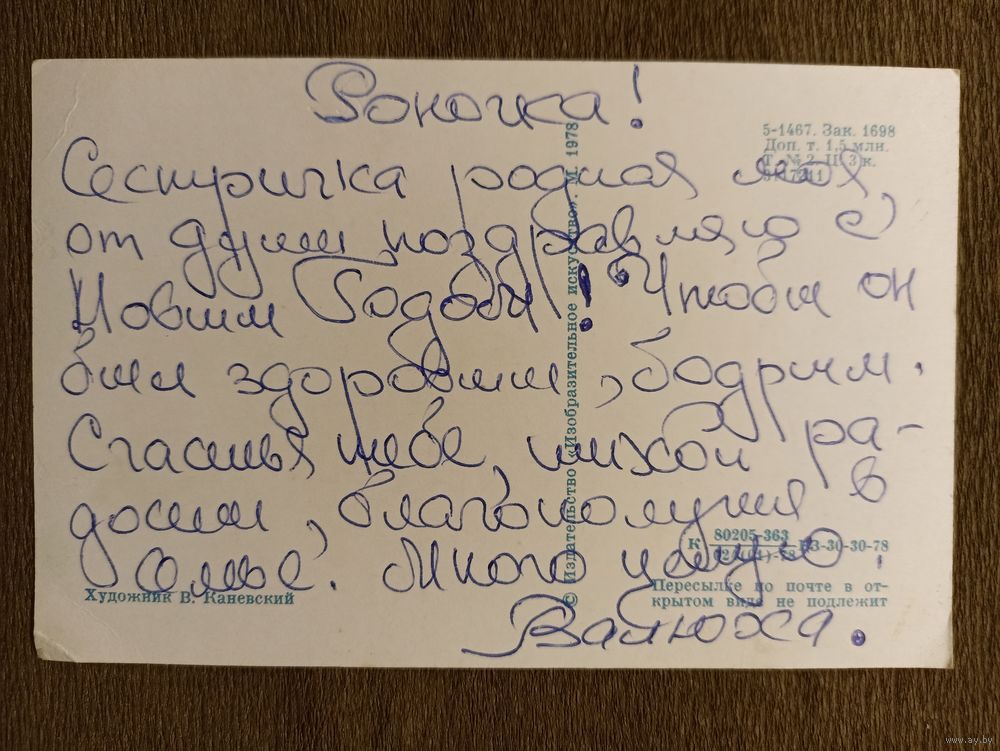 Роночка!
5-1467. Зак. 1698
Доп. т. 1,5 млн.
Т. № 2. Ц. 3 к.
Сестричка родная моя,
от души поздравляю с
Новым Годом! Чтобы он
был здоровым, бодрым.
Счастья тебе, тихой ра-
дости, благополучия в
семье. Много целую.
Валюха.
© Издательство «Изобразительное искусство». М. 1978
К 80205-363 БЗ-30-30-78
Художник В. Каневский
Пересылке по почте в от-
крытом виде не подлежит
www.ay.by